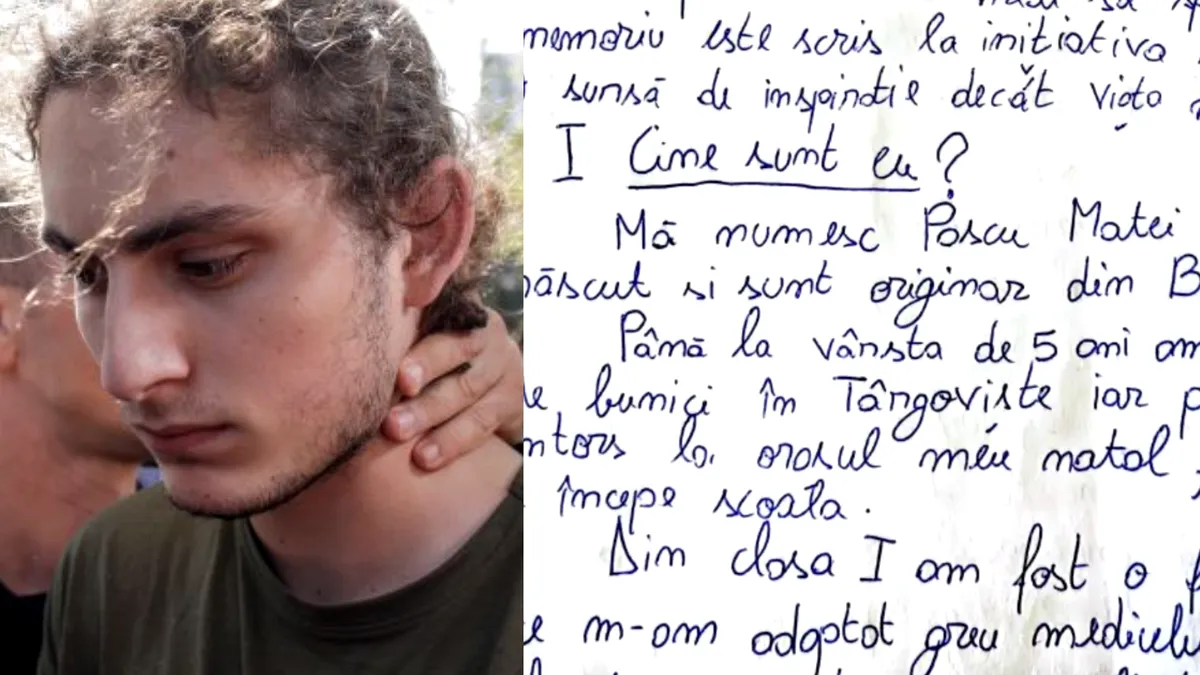 memoriu este scris la initiativa
sursă de inspiratie decăt viata
I Cine sunt eu?
Mă numesc Pascu Matei
născut si sunt originar din B
Până la vârsta de 5 ani am
bunici în Târgoviste iar p
ntors la orasul meu natal
începe scoala.
Din clasa I am fost o f
m-am adaptat greu mediului